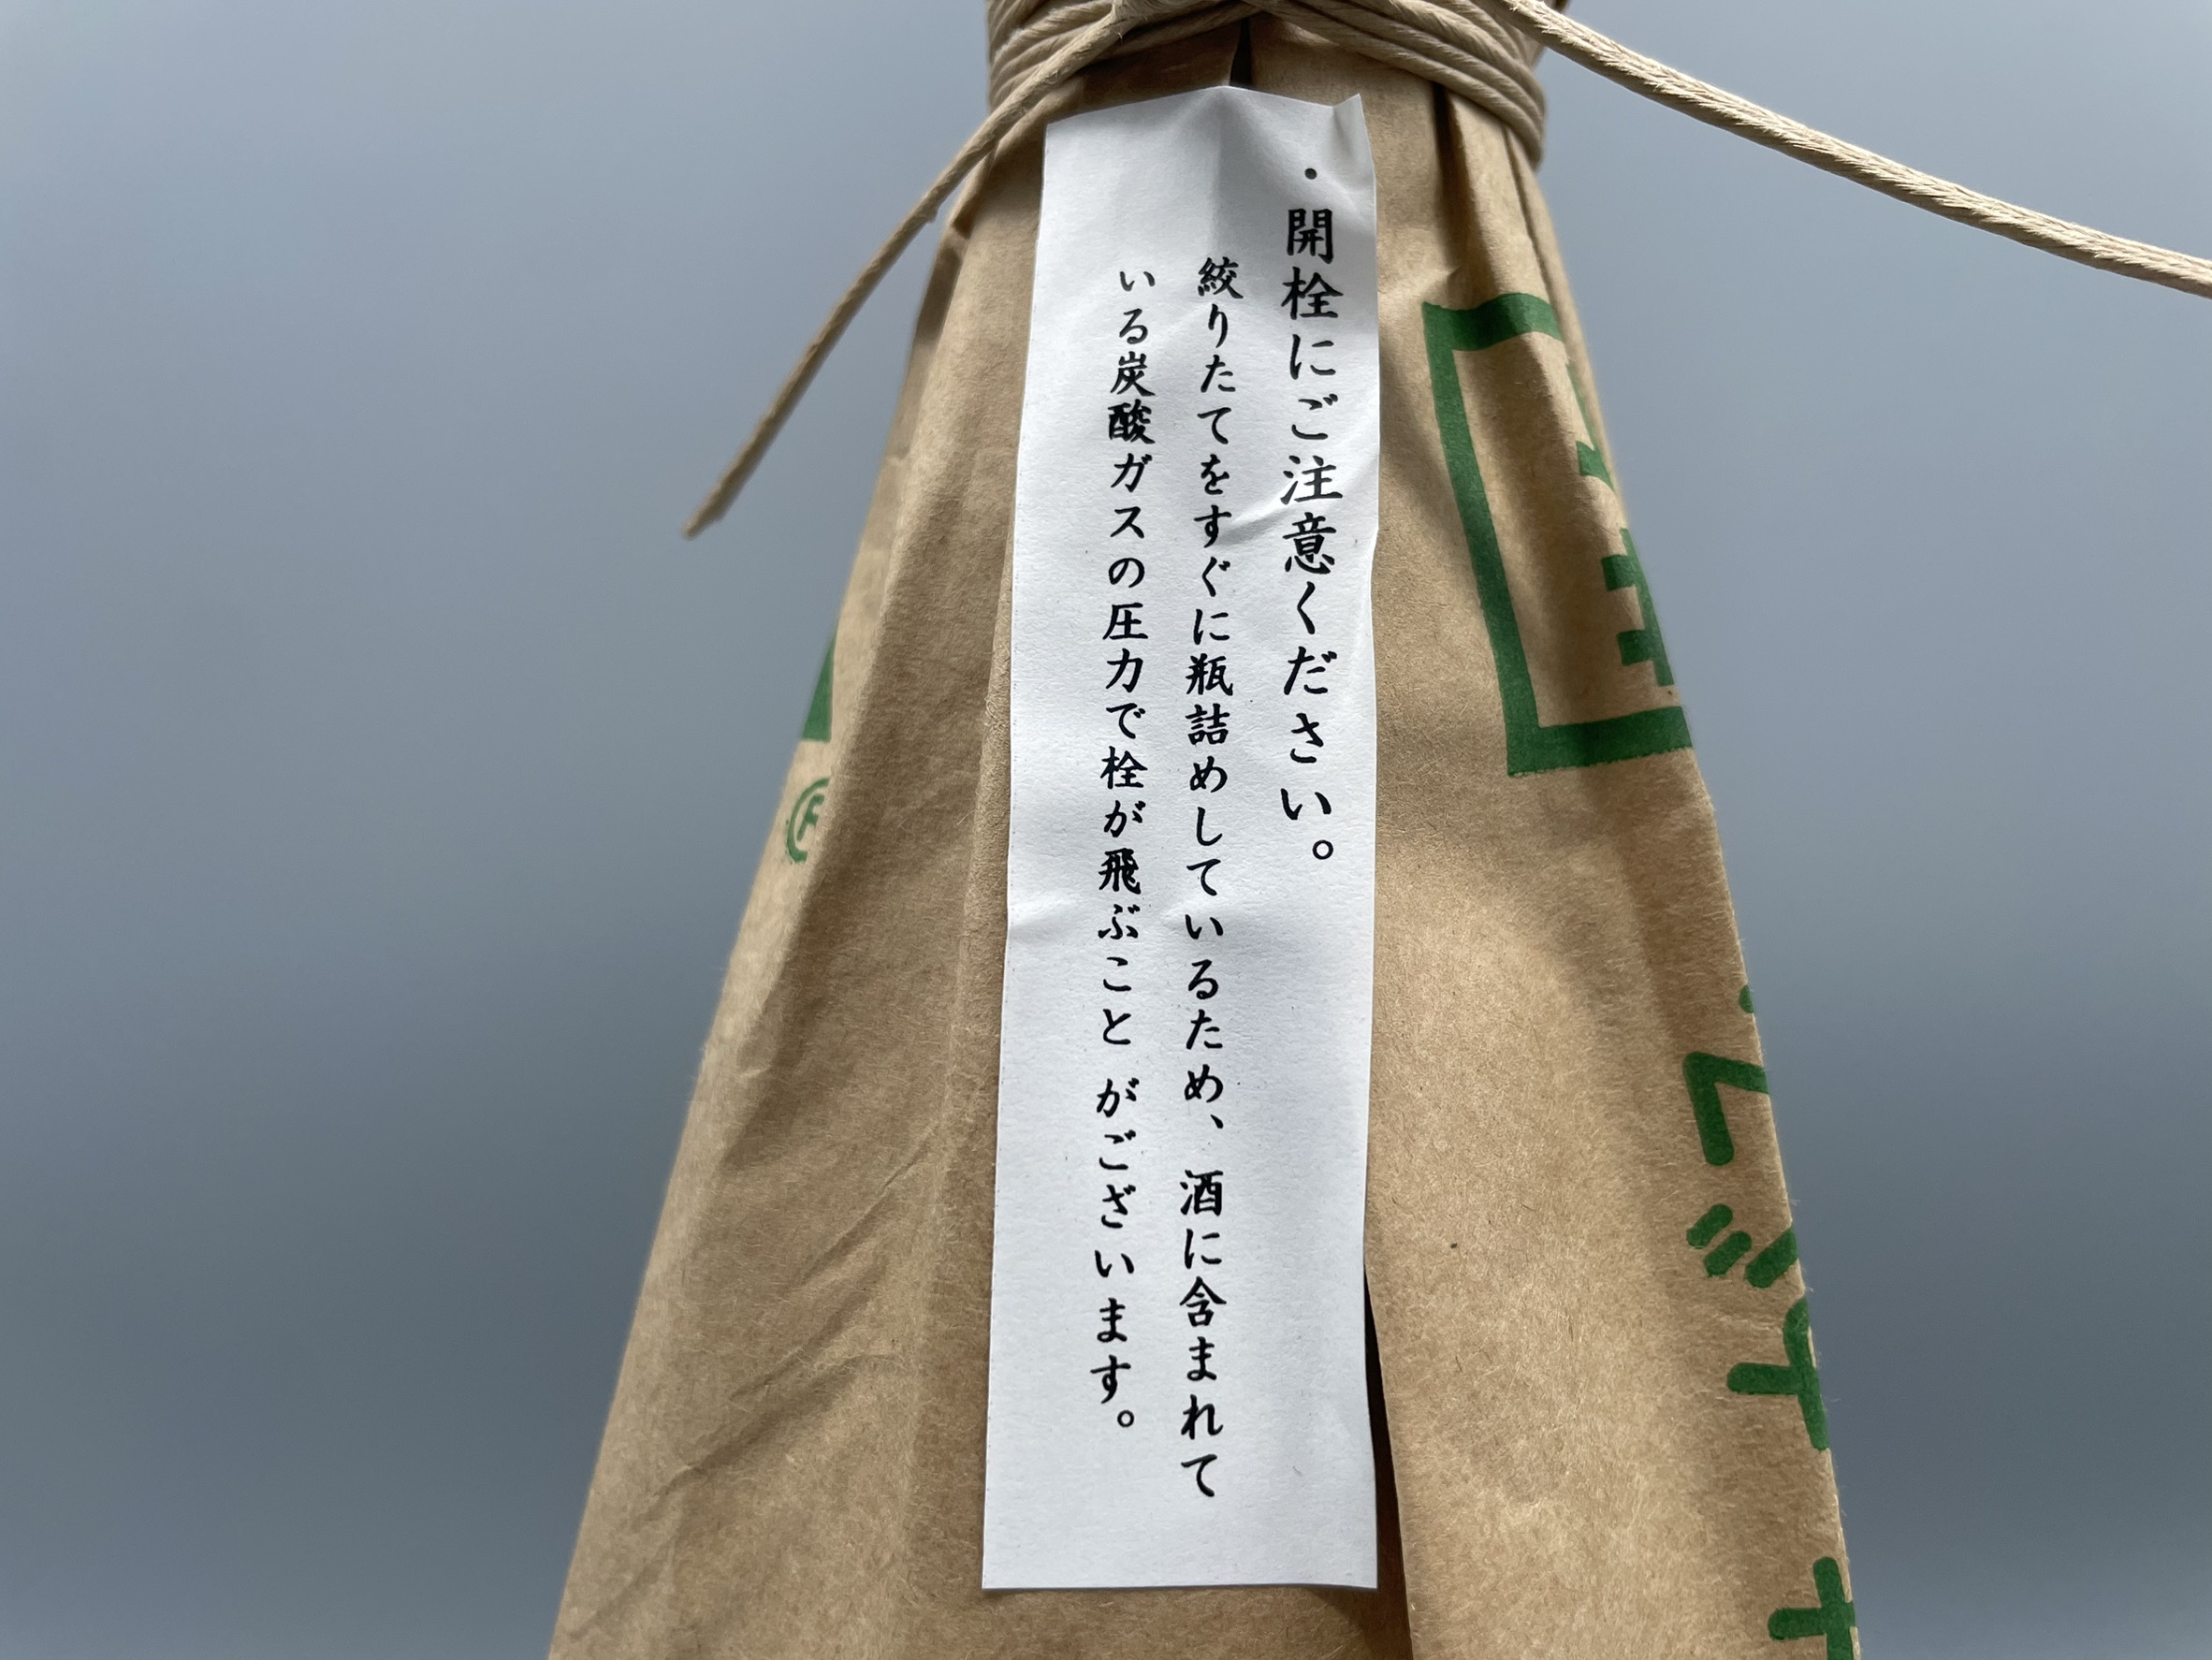 ・開栓にご注意ください。
絞りたてをすぐに瓶詰めしているため、酒に含まれて
いる炭酸ガスの圧力で栓が飛ぶことがございます。
®